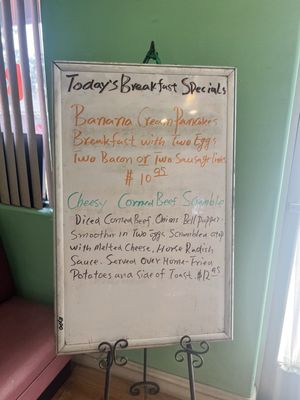 Today's Breakfast Specials
Banana Cream Pancakes
Breakfast with Two Eggs
Two Bacon or Two Sausage Links
$10.95
Cheesy Corned Beef Scramble
Diced Corned Beef Onions Bell Pepper
Smoother in Two Eggs Scrambled atop
with Melted Cheese, Horse Radish
Sauce. Served Over Home-Fried
Potatoes and a Side of Toast. $12.95